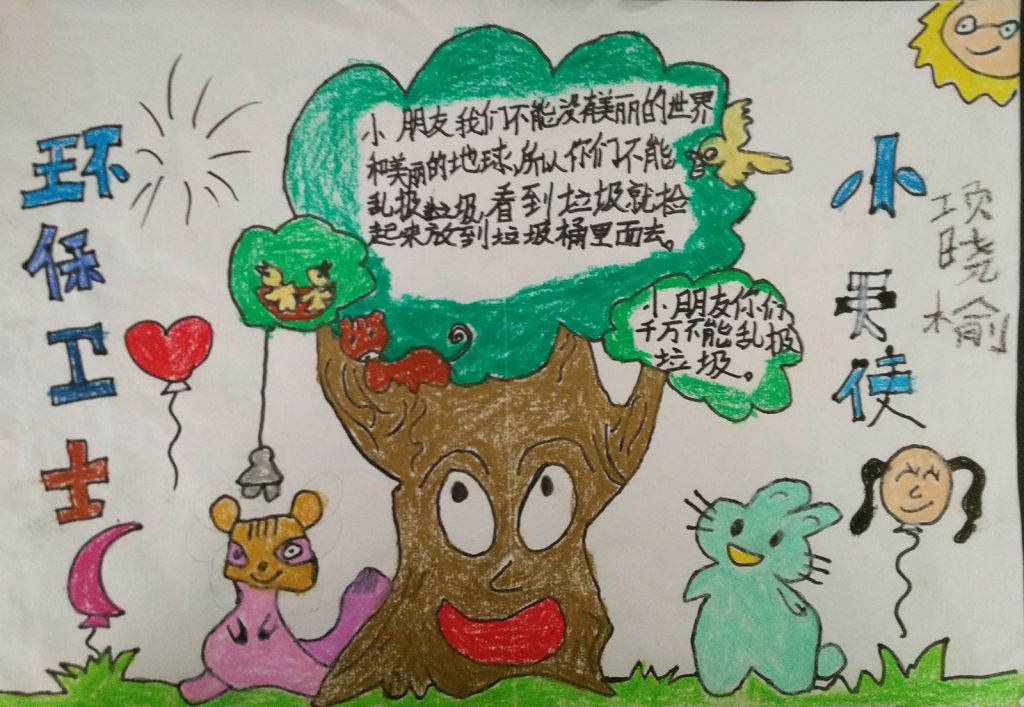 环保卫士
小朋友我们不能没有美丽的世界
和美丽的地球,所以你们不能
乱极垃圾,看到垃圾就检
起来放到垃圾桶里面去。
小朋友你们
千万不能乱极
垃圾。
小天使
项晓榆